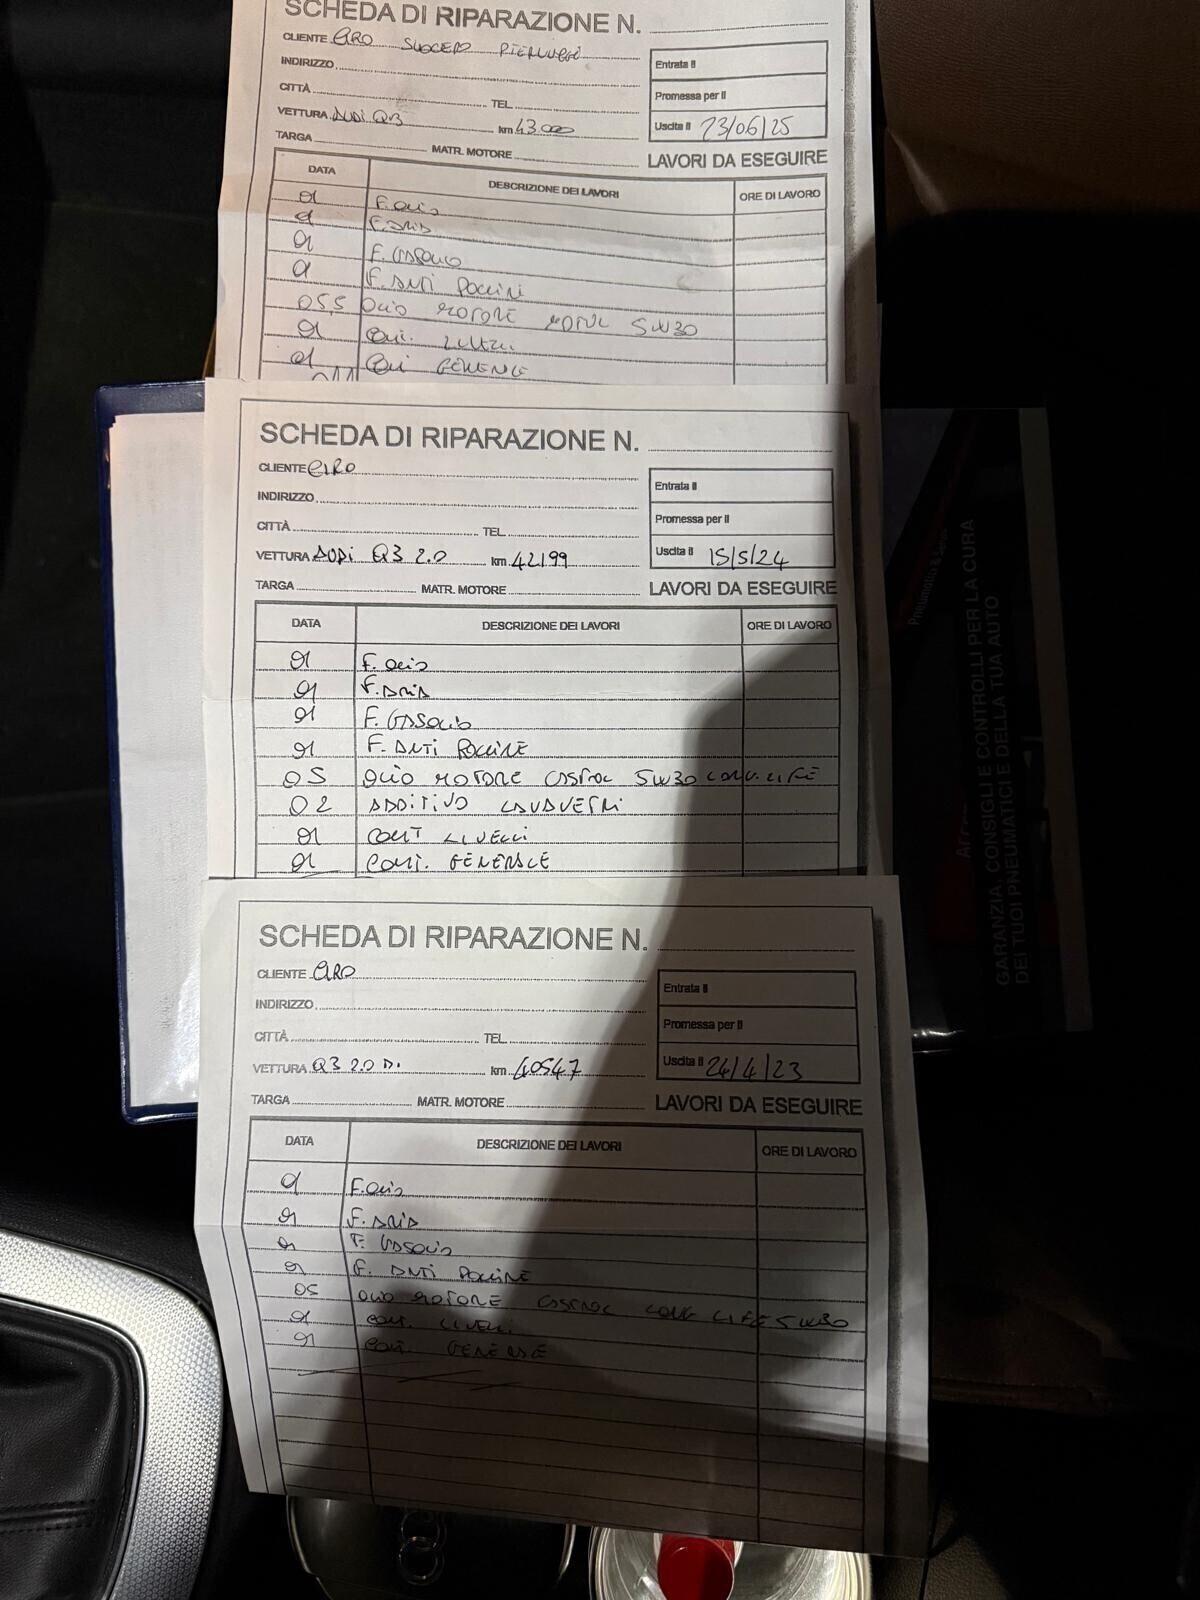 SCHEDA DI RIPARAZIONE N.
CLIENTE CIRO SUOCERO PIERLUIGI
INDIRIZZO
CITTÀ TEL.
VETTURA AUDI Q3 km 43.000
TARGA MATR. MOTORE
Entrata il
Promessa per il
Uscita il 23/06/25
LAVORI DA ESEGUIRE
DATA DESCRIZIONE DEI LAVORI ORE DI LAVORO
01 F. OLIO
01 F. ARIA
01 F. GASOLIO
01 F. ANTI POLLINI
05,5 OLIO MOTORE MOTUL 5W30
01 CONT. LIVELLI
01 CONT GENERALE
SCHEDA DI RIPARAZIONE N.
CLIENTE CIRO
INDIRIZZO
CITTÀ TEL.
VETTURA AUDI Q3 2.0 km 42199
TARGA MATR. MOTORE
Entrata il
Promessa per il
Uscita il 15/5/24
LAVORI DA ESEGUIRE
DATA DESCRIZIONE DEI LAVORI ORE DI LAVORO
01 F. OLIO
01 F. ARIA
01 F. GASOLIO
01 F. ANTI POLLINE
05 OLIO MOTORE CASTROL 5W30 LONG.LIFE
02 ADDITIVO LAVAVETRI
01 CONT LIVELLI
01 CONT. GENERALE
SCHEDA DI RIPARAZIONE N.
CLIENTE CIRO
INDIRIZZO
CITTÀ TEL.
VETTURA Q3 2.0 D. km 40547
TARGA MATR. MOTORE
Entrata il
Promessa per il
Uscita il 24/4/23
LAVORI DA ESEGUIRE
DATA DESCRIZIONE DEI LAVORI ORE DI LAVORO
01 F. OLIO
01 F. ARIA
01 F. GASOLIO
01 F. ANTI POLLINE
05 OLIO MOTORE CASTROL LONG LIFE 5W30
01 CONT. LIVELLI
01 CONT. GENERALE
GARANZIA, CONSIGLI E CONTROLLI PER LA CURA
DEI TUOI PNEUMATICI E DELLA TUA AUTO